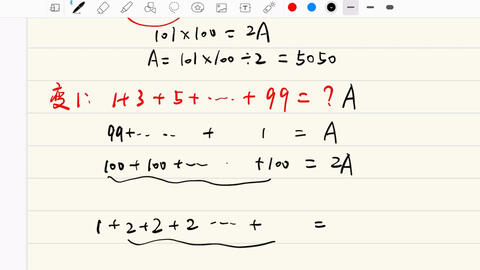 101×100=2A
A=101×100÷2=5050
变1: 1+3+5+……+99=?A
99+…… + 1 = A
100+100+…… +100=2A
1+2+2+2……+ =